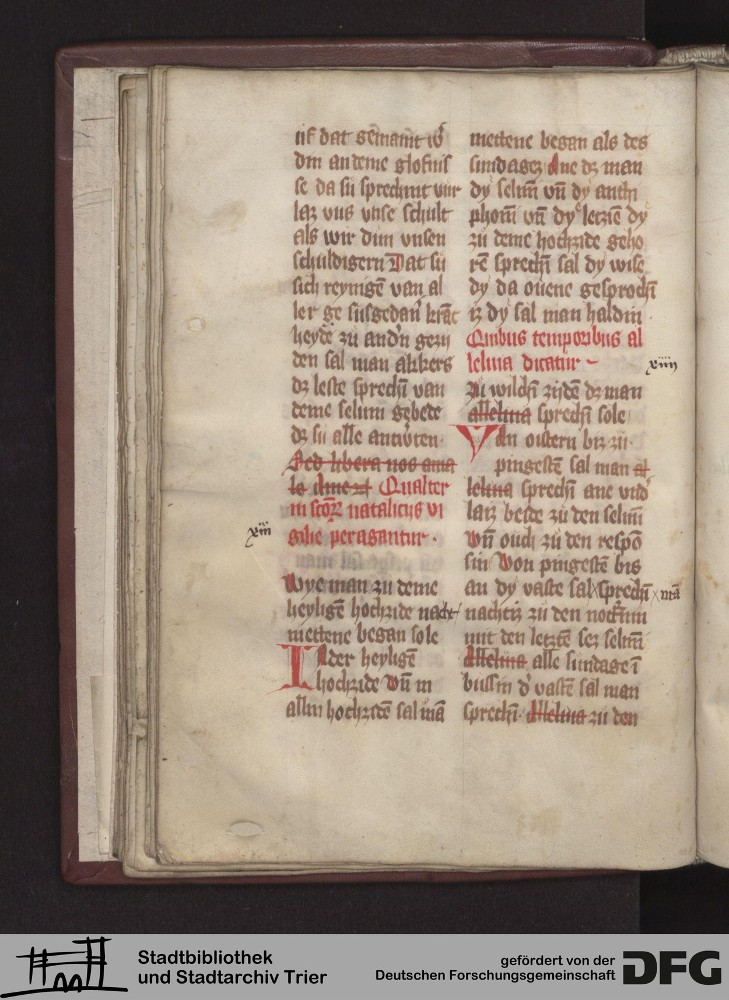 din an deme glofnis
se da sü sprechint vür
laz vns vnse schult
als wir dun vnsen
schuldigern Dat sü
sich reynigē van al
heyde zu and'n gezij
den sal man akkers
dz leste sprechī van
deme selum gebede
dz sü alle antw̄rten·
Sed libera nos ama
lo Qualiter
in sctōꝝ natalicijs vi
gilie peragantur ·
xiii
Wye man zu deme
heyligē hochzide nacht
mettene began sole
IN der heyligē
hochzide Vn̄ in
allin hochzidē sal mā
mettene began als des
sundagez Ane dz man
dy selm̄ vn̄ dy anth
phom̄ vn̄ dy letziē dy
zu deme hochzide geho
rē sprechī sal dy wise
dy da ouene gesprochī
iz dy sal man haldin
Quibus temporibus al
leluia dicatur ~
xiiii
zu wilchī zijdē dz man
alleluia sprechī sole
VAn oistern biz zu
pingestē sal man al
leluia sprechī ane vnd'
laiz beide zu den selm̄
Vn̄ ouch zu den respō
sin Von pingestē bis
an dy vaste sal sprechī × mā
nachtiz zu den nocturn
mit den letztē sez selm̄
Alleluia alle sundage ī
bussin d' vastē sal man
sprechī Alleluia zu den
Stadtbibliothek
und Stadtarchiv Trier
gefördert von der
Deutschen Forschungsgemeinschaft
DFG